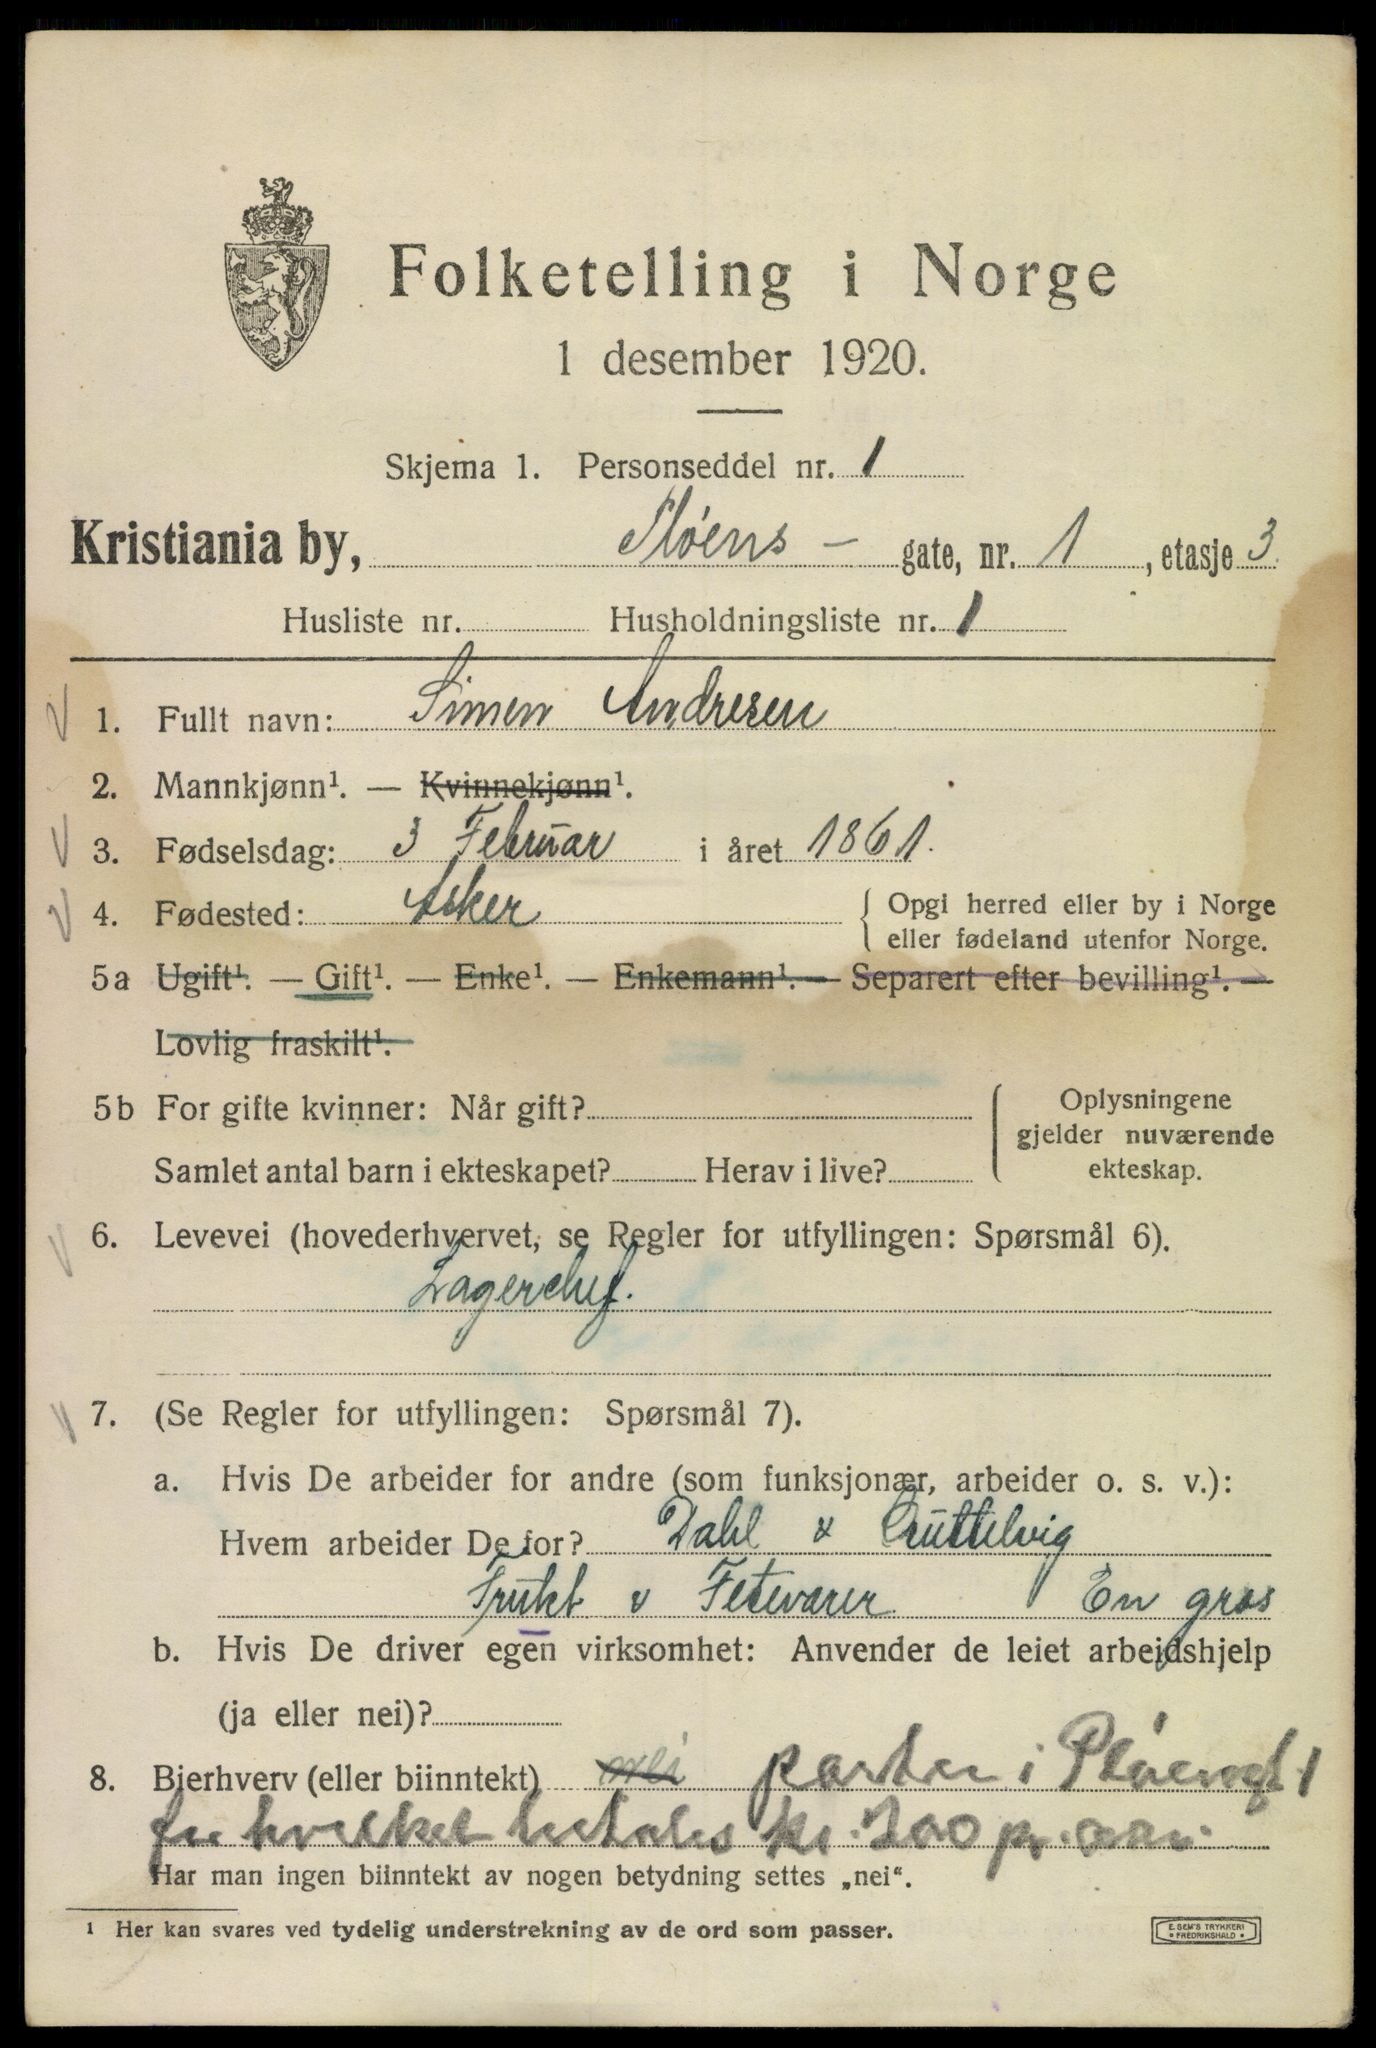 Folketelling i Norge
1 desember 1920.
Skjema 1. Personseddel nr. 1
Kristiania by, Pløens - gate, nr. 1, etasje 3
Husliste nr. Husholdningsliste nr. 1
1. Fullt navn: Simen Andresen
2. Mannkjønn¹. — Kvinnekjønn¹.
3. Fødselsdag: 3 Februar i året 1861.
4. Fødested: Asker { Opgi herred eller by i Norge
eller fødeland utenfor Norge.
5a Ugift¹. — Gift¹. — Enke¹. — Enkemann¹. — Separert efter bevilling¹. —
Lovlig fraskilt¹.
5b For gifte kvinner: Når gift? { Oplysningene
gjelder nuværende
Samlet antal barn i ekteskapet? Herav i live? ekteskap.
6. Levevei (hovederhvervet, se Regler for utfyllingen: Spørsmål 6).
Lagerchef.
7. (Se Regler for utfyllingen: Spørsmål 7).
a. Hvis De arbeider for andre (som funksjonær, arbeider o. s. v.):
Hvem arbeider De for? Dahl &
Frukt & Fetevarer En gros
b. Hvis De driver egen virksomhet: Anvender de leiet arbeidshjelp
(ja eller nei)?
8. Bierhverv (eller biinntekt) nei i Pløensgt 1
for hvilket betales kr. 200 pr. aar.
Har man ingen biinntekt av nogen betydning settes „nei“.
¹ Her kan svares ved tydelig understrekning av de ord som passer.
E. SEM'S TRYKKERI
• FREDRIKSHALD •